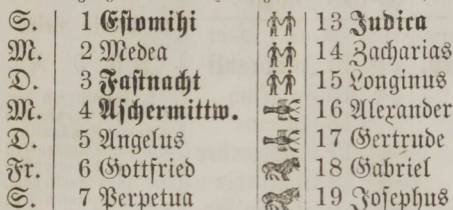 S. 1 Estomihi 13 Judica
M. 2 Medea 14 Zacharias
D. 3 Fastnacht 15 Longinus
M. 4 Aschermittw. 16 Alexander
D. 5 Angelus 17 Gertrude
Fr. 6 Gottfried 18 Gabriel
S. 7 Perpetua 19 Josephus